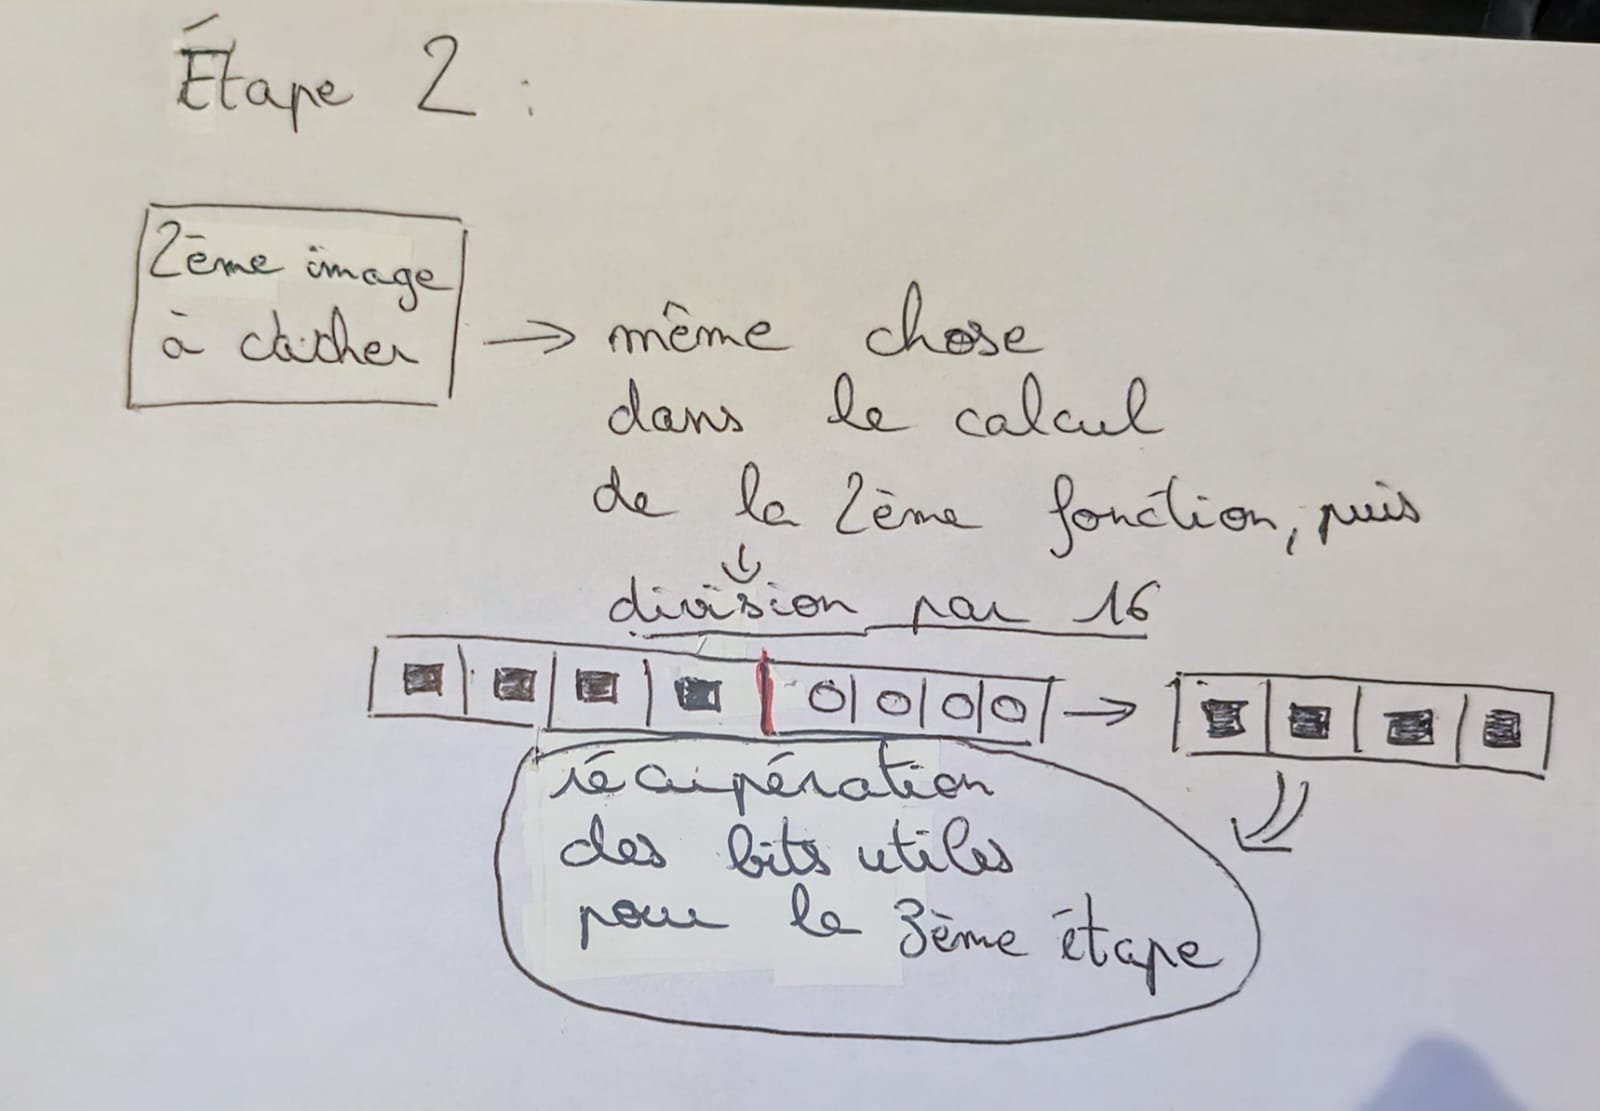 Étape 2 :
2ème image
à cacher
même chose
dans le calcul
de la 2ème fonction, puis
division par 16
0 0 0 0
récupération
des bits utiles
pour le 3ème étape